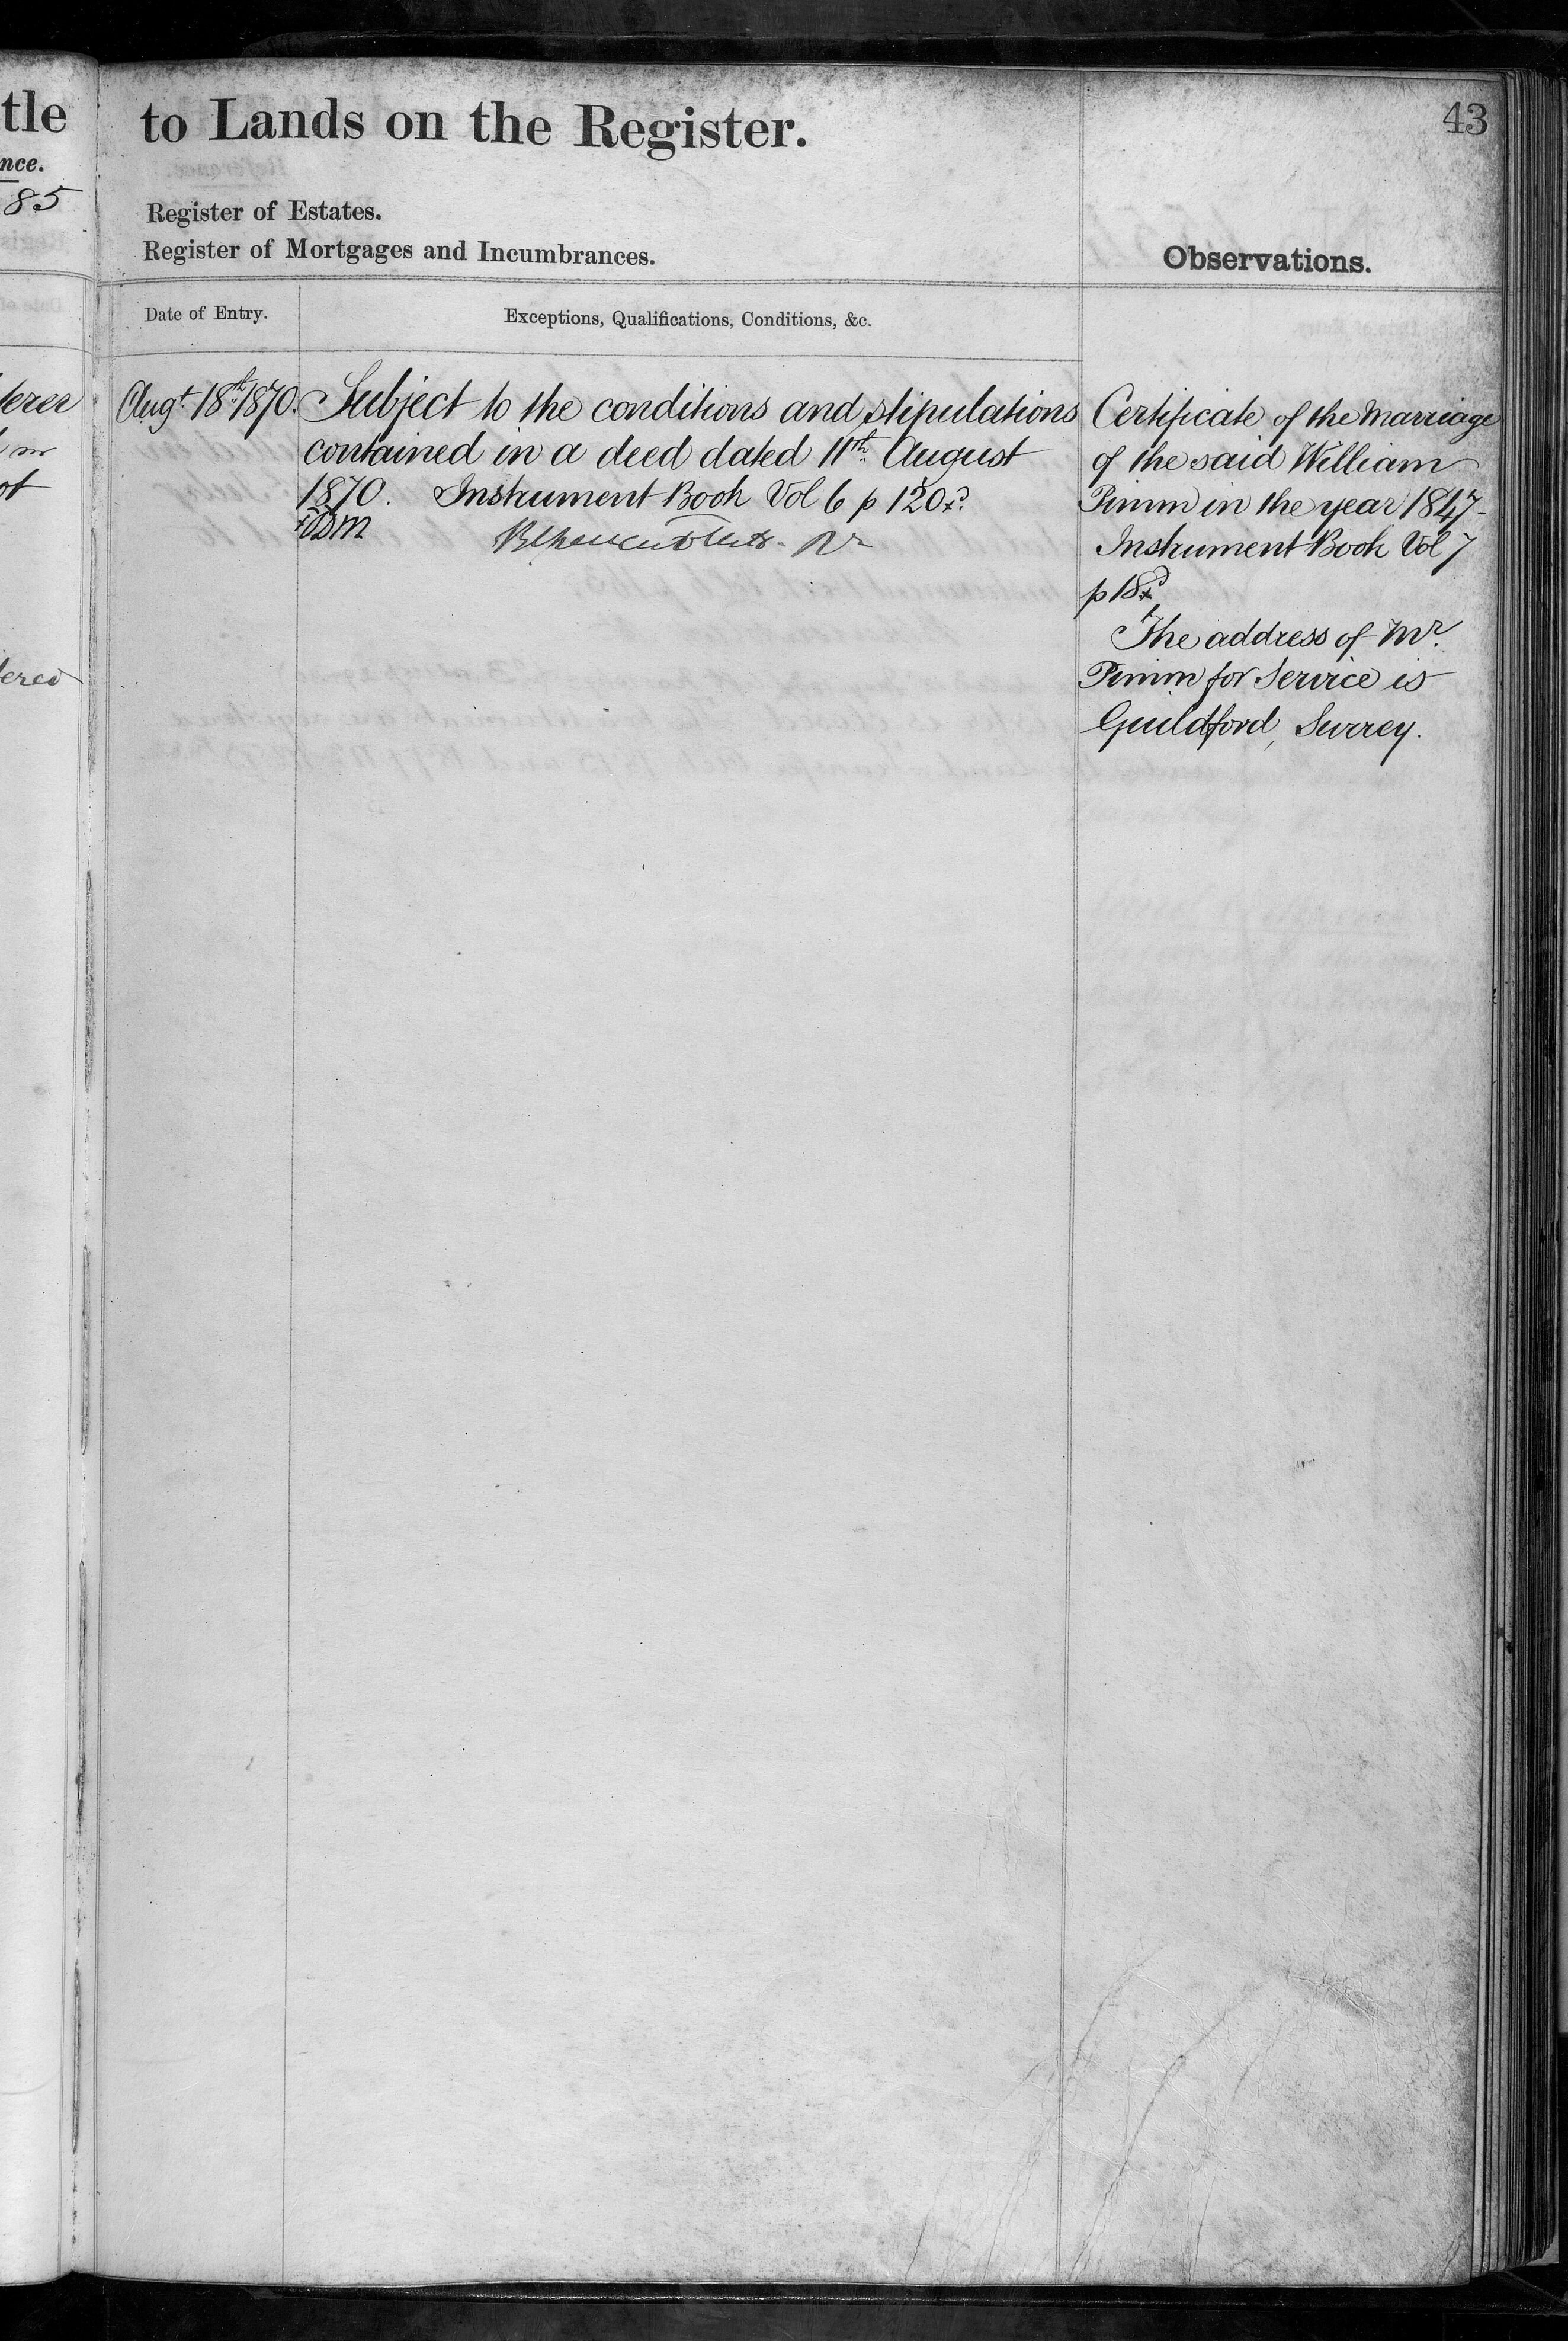 tle
nce.
85
to Lands on the Register.
43
Register of Estates.
Register of Mortgages and Incumbrances.
Observations.
Date of Entry.
Exceptions, Qualifications, Conditions, &c.
Augt. 18th 1870.
Subject to the conditions and stipulations
contained in a deed dated 11th August
1870. Instrument Book Vol 6 p 120
Certificate of the Marriage
of the said William
Pimm in the year 1847-
Instrument Book Vol 7
p 18
The address of Mr.
Pimm for Service is
Guildford, Surrey.